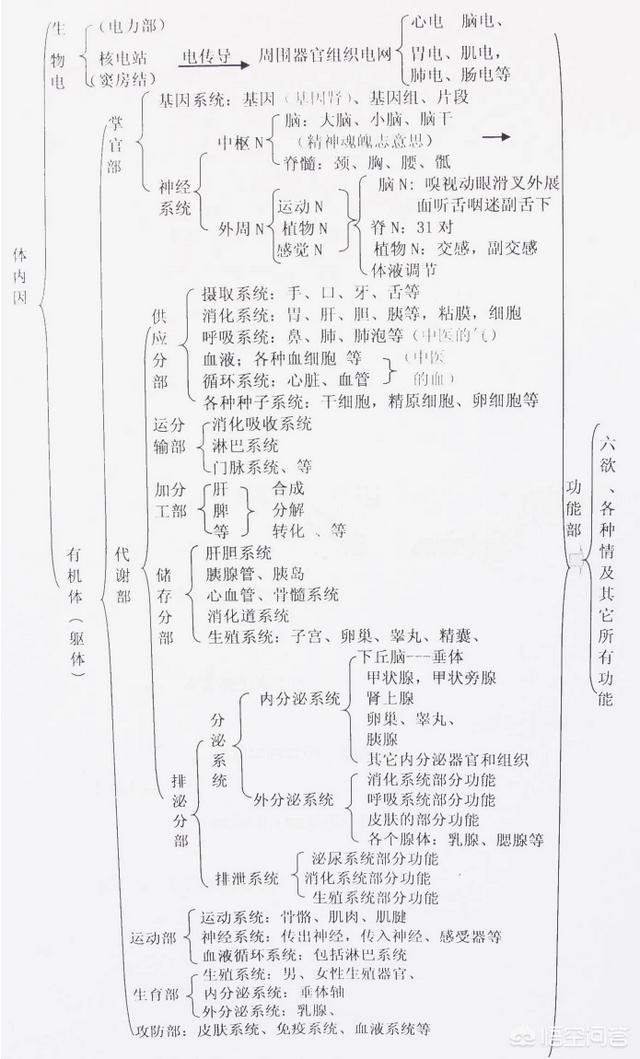 生物电
（电力部）
核电站
（窦房结）
电传导
周围器官组织电网
心电 脑电、
胃电、肌电，
肺电、肠电等
体内因
有机体（躯体）
掌官部
基因系统：基因（基因肾）、基因组、片段
神经系统
中枢N
脑：大脑、小脑、脑干
（精神魂魄志意思）
脊髓：颈、胸、腰、骶
外周N
运动N
植物N
感觉N
脑N：嗅视动眼滑叉外展
面听舌咽迷副舌下
脊N：31对
植物N：交感，副交感
体液调节
代谢部
供应分部
摄取系统：手、口、牙、舌等
消化系统：胃、肝、胆、胰等，粘膜，细胞
呼吸系统：鼻、肺、肺泡等（中医的气）
血液；各种血细胞 等
循环系统：心脏、血管
（中医的血）
各种种子系统：干细胞，精原细胞、卵细胞等
运输分部
消化吸收系统
淋巴系统
门脉系统、等
加工分部
肝
脾
等
合成
分解
转化 、等
储存分部
肝胆系统
胰腺管、胰岛
心血管、骨髓系统
消化道系统
生殖系统：子宫、卵巢、睾丸、精囊、
排泌分部
分泌系统
内分泌系统
下丘脑---垂体
甲状腺，甲状旁腺
肾上腺
卵巢、睾丸、
胰腺
其它内分泌器官和组织
外分泌系统
消化系统部分功能
呼吸系统部分功能
皮肤的部分功能
各个腺体：乳腺、腮腺等
排泄系统
泌尿系统部分功能
消化系统部分功能
生殖系统部分功能
运动部
运动系统：骨骼、肌肉、肌腱
神经系统：传出神经，传入神经、感受器等
血液循环系统：包括淋巴系统
生育部
生殖系统：男、女性生殖器官、
内分泌系统：垂体轴
外分泌系统：乳腺、
攻防部：皮肤系统、免疫系统、血液系统等
功能部
六欲、各种情及其它所有功能
悟空问答